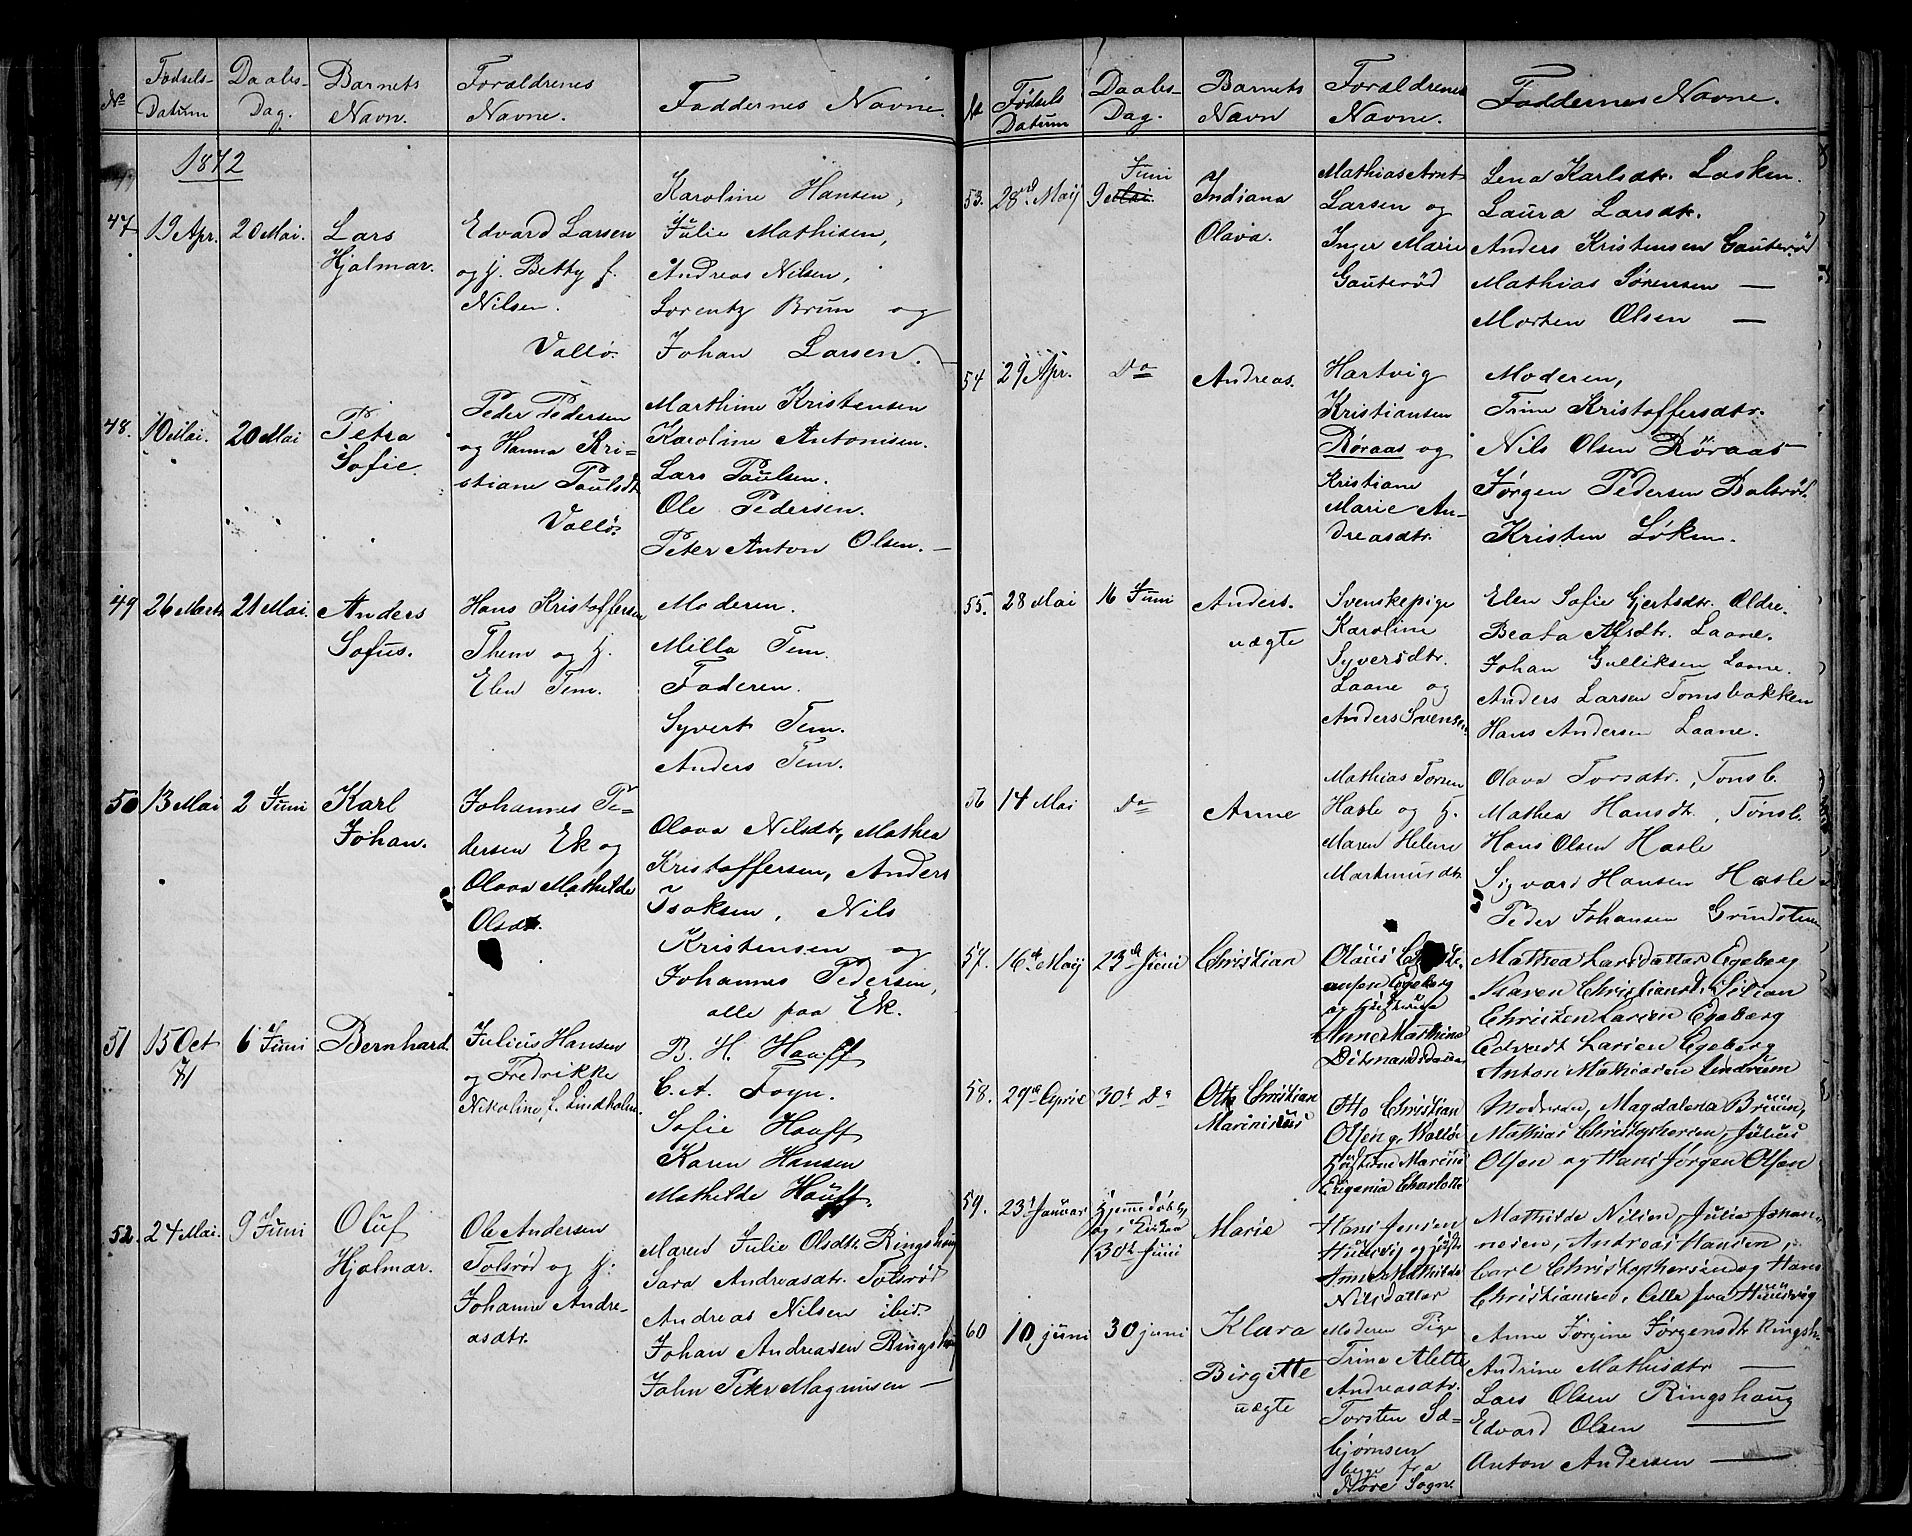 No Fødsels-Datum Daabs-Dag. Barnets Navn. Forældrenes Navne. Faddernes Navne.
1872
47 19 Apr. 20 Mai. Lars Hjalmar.
Edvard Larsen
og h. Betty f.
Nilsen.
Vallø.
Karoline Hansen,
Julie Mathisen,
Andreas Nilsen,
Lorentz Brun og
Johan Larsen.
48. 10 Mai. 20 Mai Petra Sofie.
Peder Pedersen
og Hanna Kri-
stiane Paulsdt.
Vallø.
Marthine Kristensen
Karoline Antonisen.
Lars Paulsen.
Ole Pedersen.
Peter Anton Olsen. —
49 26 Marts 21 Mai. Anders Sofus.
Hans Kristoffersen
Them og h.
Elen Tem.
Moderen.
Milla Tem.
Faderen.
Syvert Tem.
Anders Tem.
50 13 Mai 2 Juni Karl Johan.
Johannes Pe-
dersen Ek og
Olava Mathilde
Olsdt.
Olava Nilsdt, Mathea
Kristoffersen, Anders
Isaksen, Nils
Kristensen og
Johannes Pedersen,
alle paa Ek.
51 15 Oct 71 6 Juni Bernhard.
Julius Hansen
og Fredrikke
Nikoline f. Lindholm.
B. H. Hauff
C. A. Fogn.
Sofie Hauff
Karen Hansen
Mathilde Hauff.
52. 24 Mai. 9 Juni Oluf Hjalmar.
Ole Andersen
Tolsrød og h.
Johanne Andre-
asdtr.
Maren Julie Olsdtr. Ringshaug
Sara Andreasdtr. Tolsrød
Andreas Nilsen ibid.
Johan Andreasen Ringshaug
John Peter Magnusen —
No Fødsels Datum Daabs-Dag. Barnets Navn Forældrenes Navne. Faddernes Navne.
53. 28de Maij 9 Mai. Juni Indiana Olava.
Mathias Arnt
Larsen og
Inger Marie
Gauterød
Lena Karlsdtr. Løsken.
Laura Larsdtr.
Anders Kristensen Gauterød
Mathias Sørensen —
Morten Olsen —
54 29 Apr. Do Andreas.
Hartvig
Kristiansen
Røraas og
Kristiane
Marie An-
dreasdtr.
Moderen,
Trine Kristoffersdtr.
Nils Olsen Røraas
Jørgen Pedersen Bolsrød.
Kristen Løken.
55. 28 Mai 16 Juni Anders. uægte
Svenskepige
Karoline
Syversdtr.
Laane og
Anders Svensen.
Elen Sofie Gjertsdtr. Oldre.
Beata Alsdtr. Laane.
Johan Gulliksen Laane.
Anders Larsen Tomsbakken
Hans Andersen Laane.
56 14 Mai Do Anne
Mathias Torsen
Hasle og h.
Maren Helene
Markmusdtr
Olava Torsdtr., Tønsb.
Mathea Hansdtr., Tønsb.
Hans Olsen Hasle
Sigvard Hansen Hasle
Peder Johansen Grindstuen
57. 16de Maij 23de Juni Christian
Olaus Christi-
ansen Egeberg
og Hustrue
Anne Mathine
Ditmansdatter
Mathea Larsdatter Egeberg
Maren Christiansd. Sitian
Christen Larsen Egeberg
Edvardt Larsen Egeberg
Anton Mathiasen Undrum
58. 29de April 30te Do Otto Christian Marinisius
Otto Christian
Olsen og Walløe
Hustrue Marine
Eugenia Charlotte
Moderen, Magdalena Bruun,
Mathias Christophersen, Julius
Olsen og Hans Jørgen Olsen
59. 23de Januar Hjemmedøbt og i Kirken 30te Juni Marie
Hans Jensen
Husvig og hustr
Amie Mathilde
Nilsdatter
Mathilde Nilsen, Julia Johan-
nesen, Andreas Hansen,
Carl Christophersen og Hans
Christiansen, Alle fra Huusvig
60 10 juni 30 juni Klara Birgitte uægte
Moderen Pige
Trine Alette
Andreasdtr.
Torsten Sæ-
bjørnsen
begge fra
Høre Sogn.
Anne Jørgine Jørgensdtr Ringsh.
Andrine Mathisdtr —
Lars Olsen Ringshaug
Edvard Olsen —
Anton Andersen —